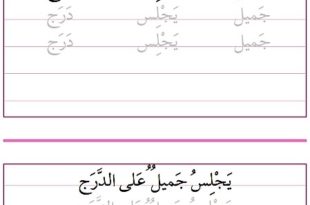 جَميل يَجْلِس دَرَج
جَميل يَجْلِس دَرَج
يَجْلِسُ جَميلٌ عَلى الدَّرَج
يَجْلِسُ جَميلٌ عَلى الدَّرَج